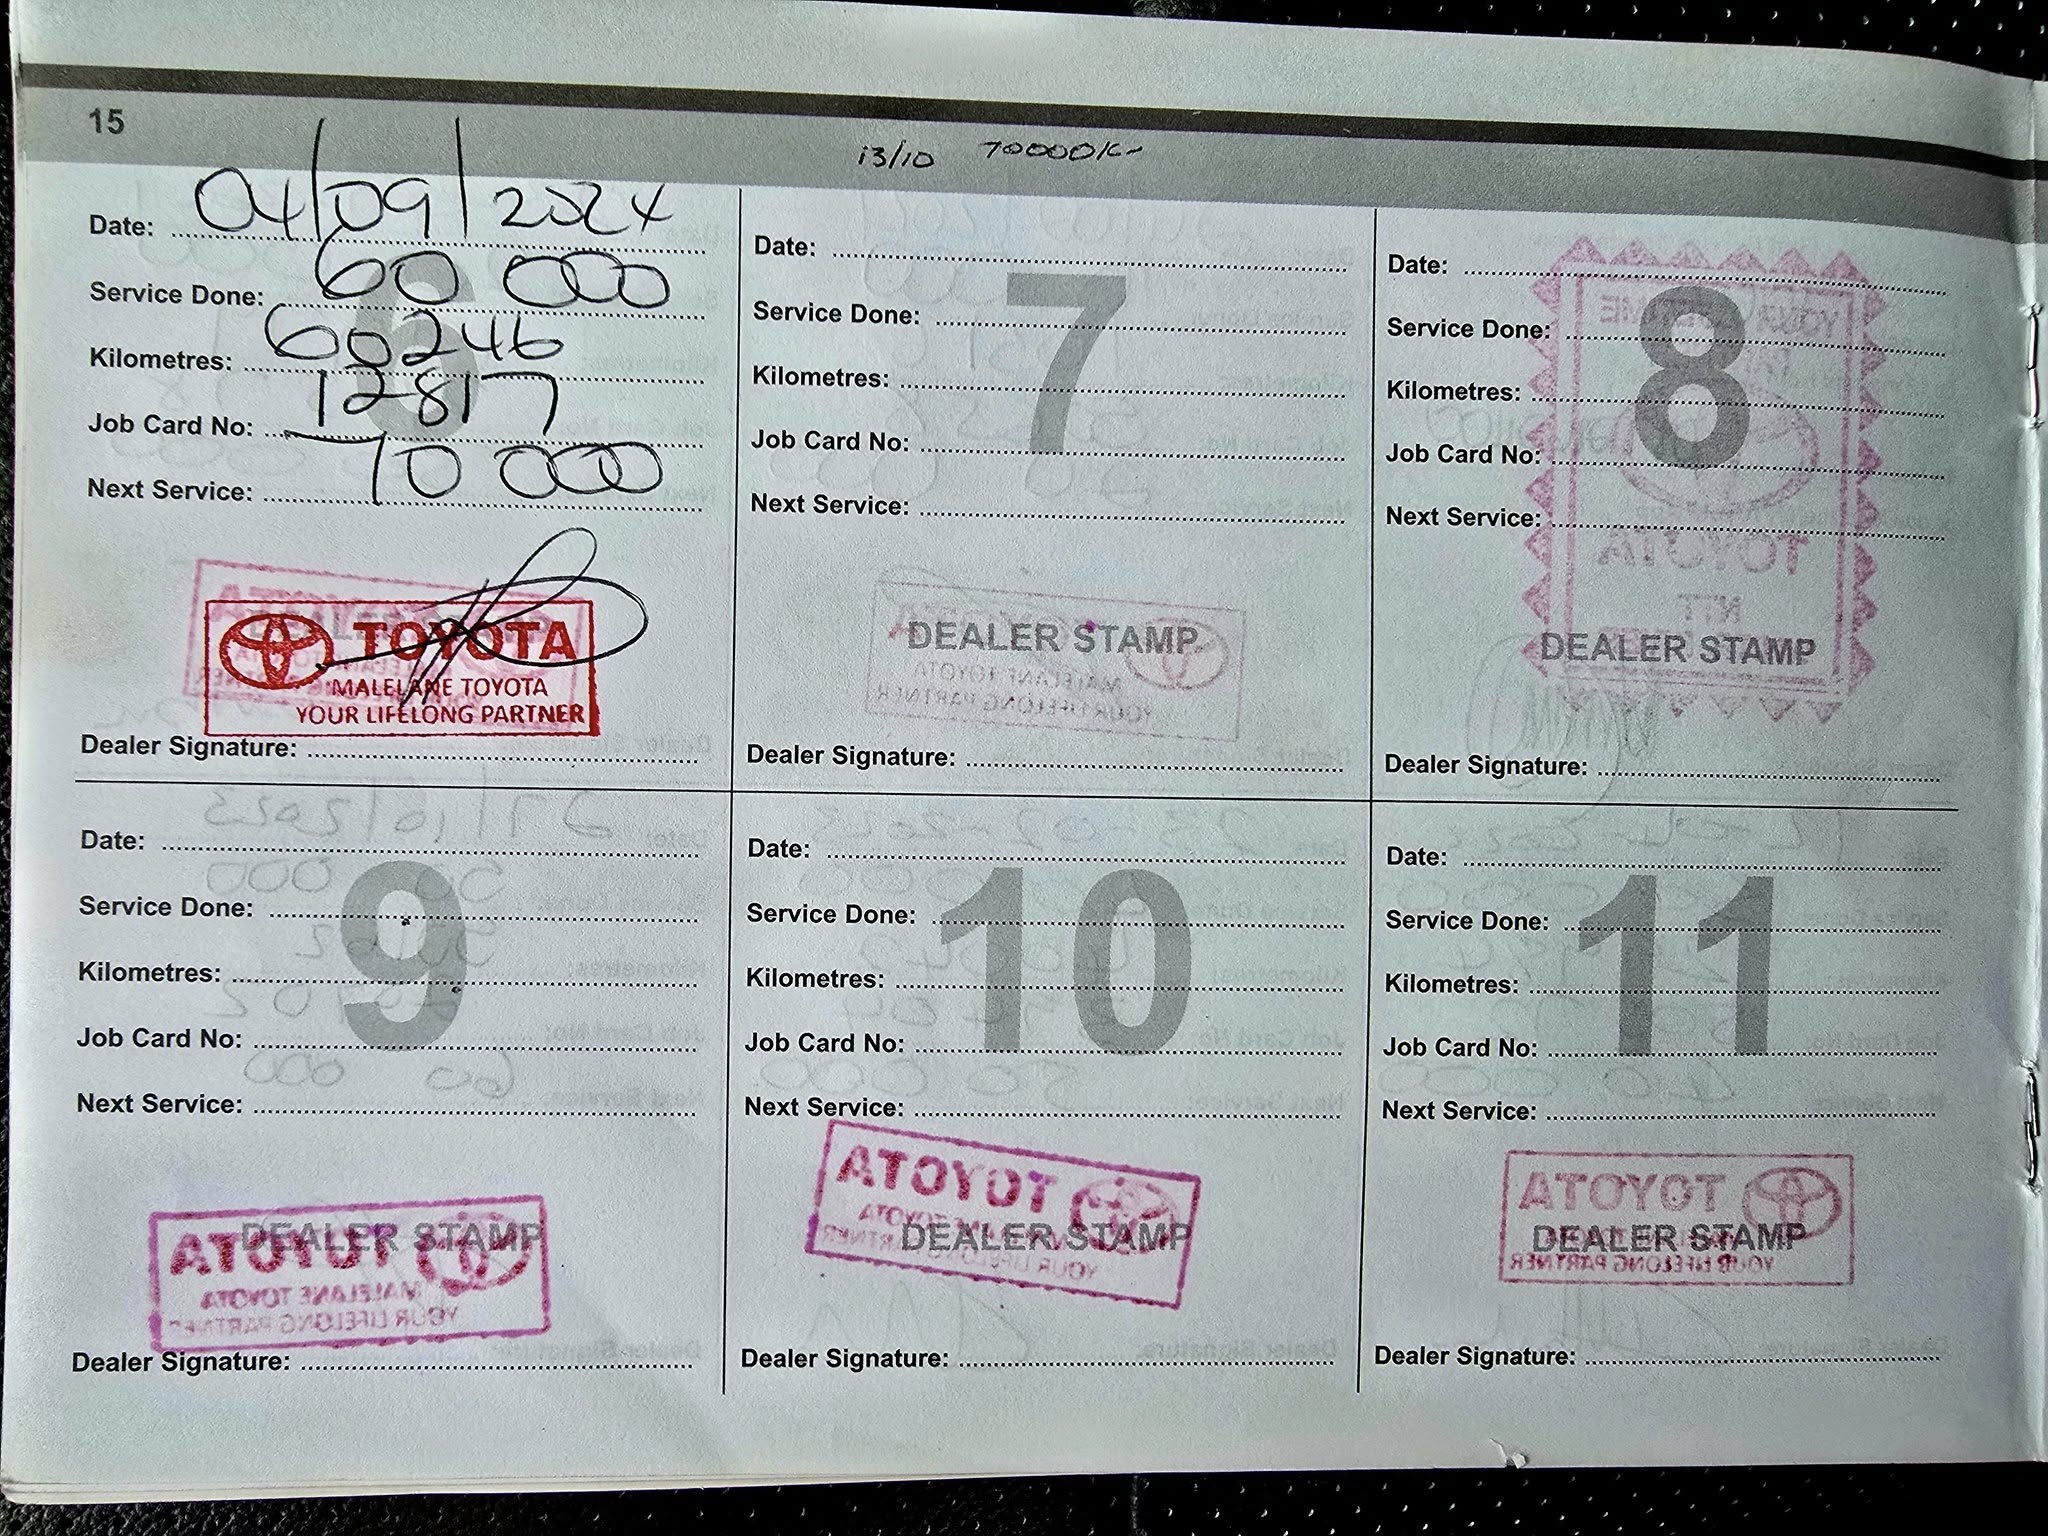 15
13/10 70000K
Date: 04/09/2024
Service Done: 60 000
Kilometres: 60246
Job Card No: 12817
Next Service: 70 000
6
TOYOTA
MALELANE TOYOTA
YOUR LIFELONG PARTNER
Dealer Signature:
Date:
Service Done:
Kilometres:
Job Card No:
Next Service:
7
DEALER STAMP
Dealer Signature:
Date:
Service Done:
Kilometres:
Job Card No:
Next Service:
8
DEALER STAMP
Dealer Signature:
Date:
Service Done:
Kilometres:
Job Card No:
Next Service:
9
DEALER STAMP
Dealer Signature:
Date:
Service Done:
Kilometres:
Job Card No:
Next Service:
10
DEALER STAMP
Dealer Signature:
Date:
Service Done:
Kilometres:
Job Card No:
Next Service:
11
DEALER STAMP
Dealer Signature: